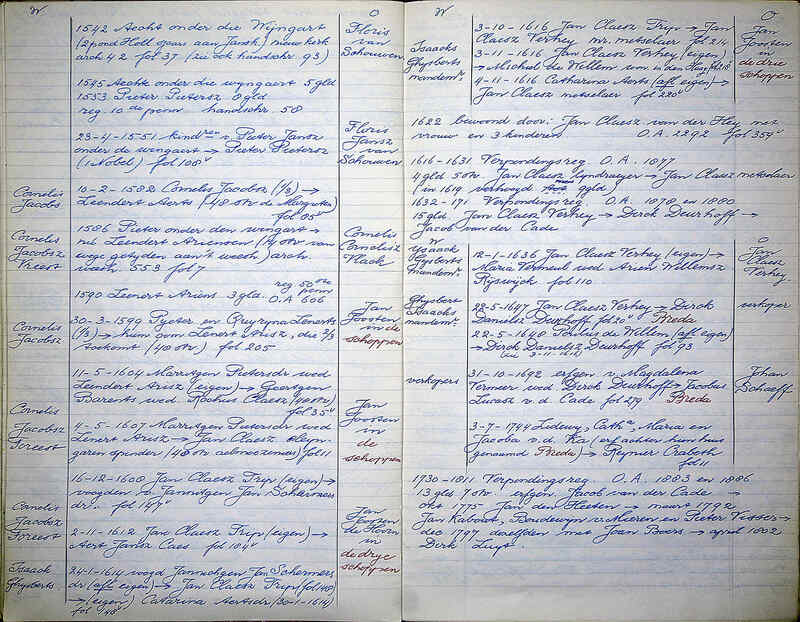 W O
1542 Aecht onder die Wyngart
(2 pond Holl opus aan Jansk) nieuw kerk
arch 42 fol 37 (zie ook handschr. 93)
Floris
van
Schouwen
1545 Aechte onder die wyngaert 5 gld
1553 Pieter Pietersz 8 gld
reg 10de penn handschr. 58
23-4-1551 kindren v Pieter Jansz
onder de wengaert → Pieter Pietersz
(1 Nobel) fol 108v
Floris
Jansz
van
Schouwen
Cornelis
Jacobs
10-2-1582 Cornelis Jacobsz (1/3) →
Leendert Aerts (48 stv de Margrieten
fol 85v
Cornelis
Jacobsz
Breest
1586 Pieter onder den wingart →
nu Leendert Ariensen (14 stv van
wege getyden aan't weesh) arch.
weesh 553 fol 7
Cornelis
Cornelisz
Vlack
1590 Lenert Ariens 3 gld. reg 50ste
penn
O.A 606
Cornelis
Jacobsz
30-3-1599 Pieter en Quyryna Lenerts
(1/3) → hun oom Lenert Arisz, die 2/3
toekomt (40 stv) fol 205
Jan
Joosten
in de
schoppen
11-5-1604 Marritgen Pietersdr wed
Leendert Arisz (eigen) → Geertgen
Barents wed Rochus Claesz (40 stv)
fol 35v
Cornelis
Jacobsz
Breest
4-5-1607 Marritgen Pietersdr wed
Lenert Arisz → Jan Claesz kleyn-
garen spender (48 stv aelmoezeniers) fol 11
Jan
Joosten
in
de
schoppen
16-12-1608 Jan Claesz Trip (eigen) →
voogden v Jannitgen Jan Schermers
dr. fol 147v
Cornelis
Jacobsz
Breest
2-11-1612 Jan Claesz Trip (eigen) →
Aert Jansz Caes fol 104v
Jan
Joosten
de Hoorn
in
de drye
schoppen
Isaack
Ghysberts
24-1-1614 voogd Jannichgen Jan Schermers
dr (afl eigen) → Jan Claesz Trip (fol 48)
→ (eigen) Catarina Aertsdr (30-1-1614)
fol 48v
W O
Isaacks
Ghysberts
mandemr.
3-10-1616 Jan Claesz Trip → Jan
Claesz Verhey mr. metselaer fol 214
3-11-1616 Jan Claesz Verhey (eigen)
→ Michiel de Willem won in den Haag fol 218
4-11-1616 Catharina Aerts (afl eigen) →
Jan Claesz metselaer fol 220v
Jan
Joosten
in
de drie
schoppen
1622 bewoond door: Jan Claesz van der Hey met
vrouw en 3 kinderen O.A. 2292 fol 359v
1616-1631 Verpondingsreg. O.A. 1877
4 gld 5 stv. Jan Claesz lyndraeyer → Jan Claesz metselaer
(in 1619 verhoogd naar 9 gld)
1632-171 Verpondingsreg. O.A. 1878 en 1880
15 gld Jan Claesz Verhey → Dirck Deurhoff →
Jacob van der Cade
W O
Ysaack
Gysberts
mandemr.
12-1-1636 Jan Claesz Verhey (eigen) →
Maria Vermeul wed Arien Willemsz
Rijswijck fol 110
Jan
Claesz
Verhey.
Ghysbert
Isaacks
mandemr.
28-5-1647 Jan Claesz Verhey → Dirck
Danielsz Deurhoff fol 20v Breda
22-5-1648 Paulus de Willem (afl eigen)
→ Dirck Danielsz Deurhoff fol 93
(zie 3-11-1616)
verkoper
verkopers
31-10-1692 erfgen v. Magdalena
Vermeer wed Dirck Deurhoff → Jacobus
Lucasz v. d. Cade fol 279 Breda
Johan
Schaeff
3-7-1744 Lidewy, Catha, Maria en
Jacoba v. d. Ka (erf achter hun huis
genaamd Breda) → Reynier Craboth
fol 11
1730-1811 Verpondingsreg. O.A. 1883 en 1886
13 gld 7 stv. erfgen. Jacob van der Cade →
okt 1775 Jan den Heeten → maart 1792
Jan Kabout, Boudewyn v Mieren en Pieter Visser →
dec 1797 dezelfden met Joan Boers → april 1802
Dirk Luyt.